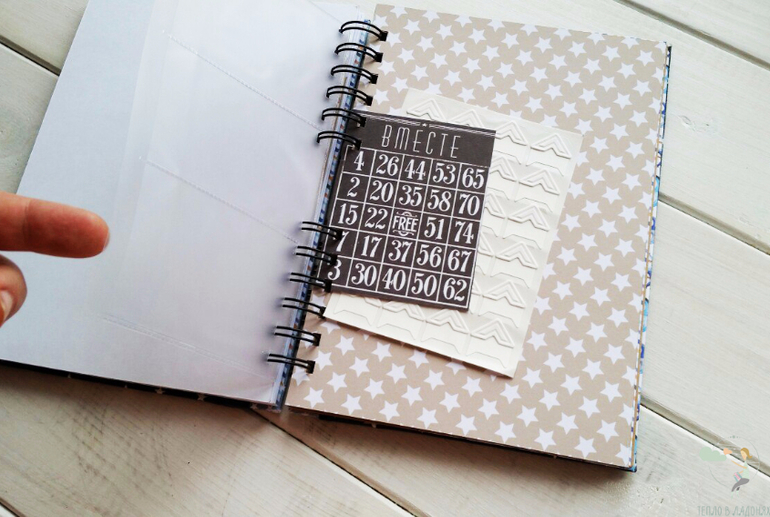 ВМЕСТЕ
4 26 44 53 65
2 20 35 58 70
15 22 FREE 51 74
7 17 37 56 67
3 30 40 50 62
ТЕПЛО В ЛАДОШКАХ